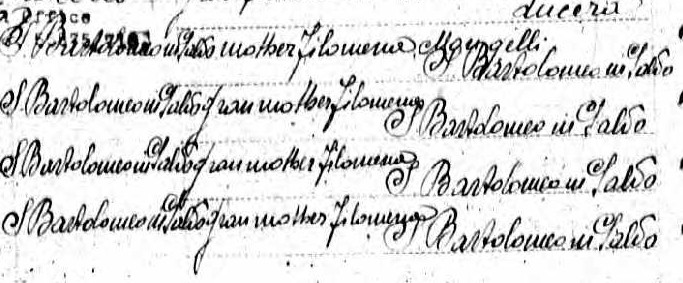 Lucera
S Bartolomeo in Galdo mother Filomena Mangelli
S Bartolomeo in Galdo
S Bartolomeo in Galdo granmother Filomena
S Bartolomeo in Galdo
S Bartolomeo in Galdo granmother Filomena
S Bartolomeo in Galdo
S Bartolomeo in Galdo granmother Filomena
S Bartolomeo in Galdo